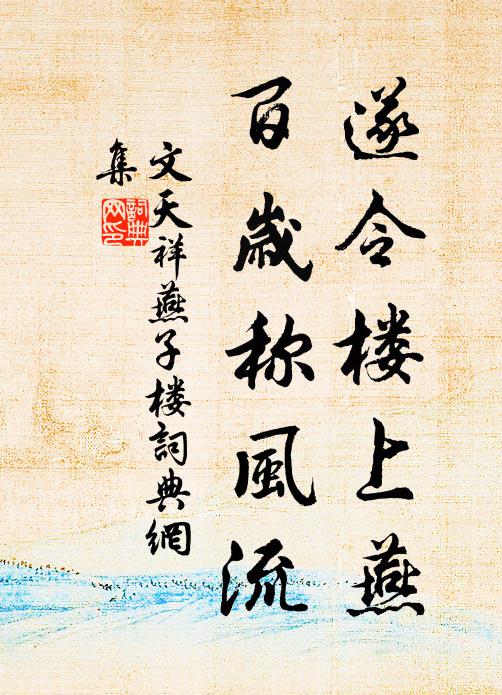 遂令楼上燕
百歳称風流
文天祥燕子楼詞典網
集
詞典网印